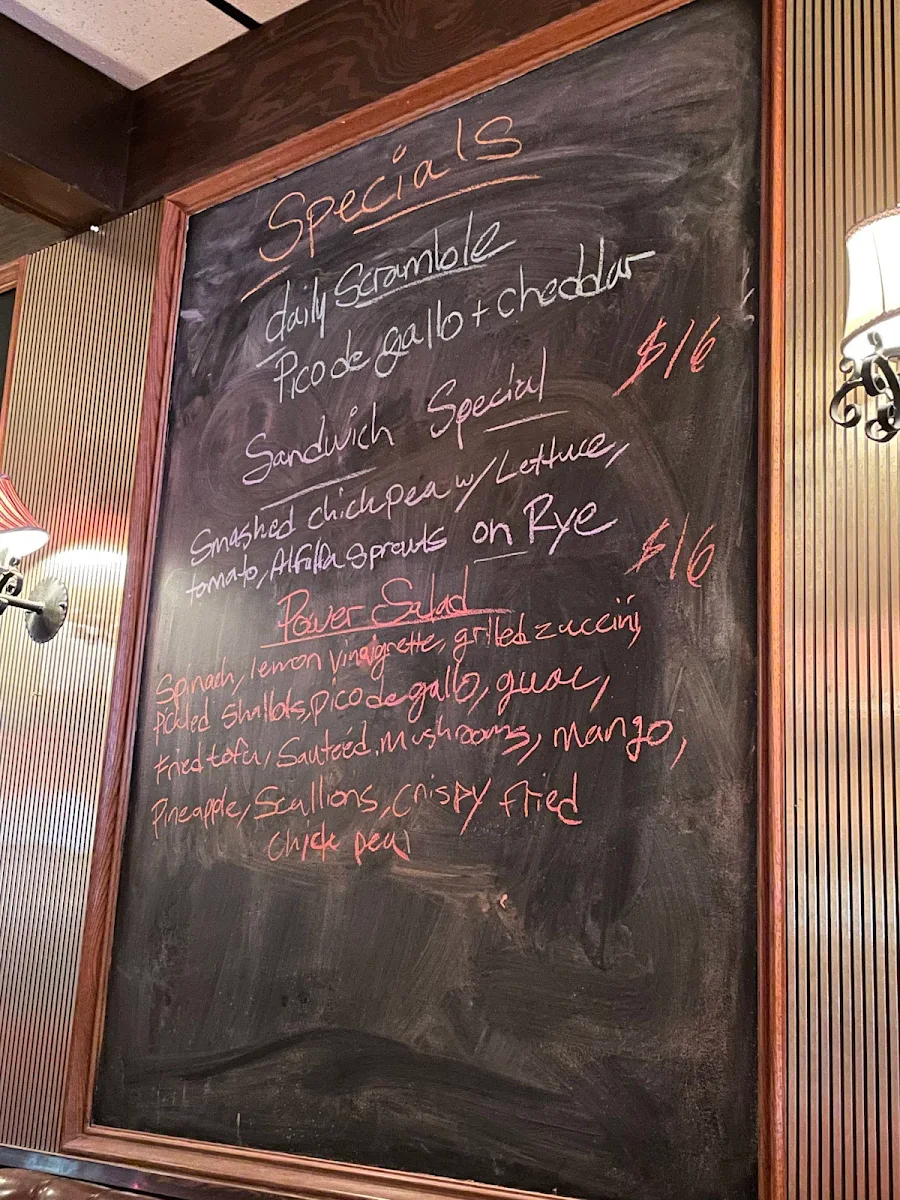 Specials
daily Scramble
Pico de gallo + cheddar
$16
Sandwich Special
Smashed chickpea w/ Lettuce,
tomato, Alfalfa sprouts on Rye
$16
Power Salad
Spinach, lemon vinaigrette, grilled zucciini,
Pickled Shallots, pico de gallo, guac,
Fried tofu, Sauteéd mushrooms, mango,
Pineapple, Scallions, crispy fried
chick pea